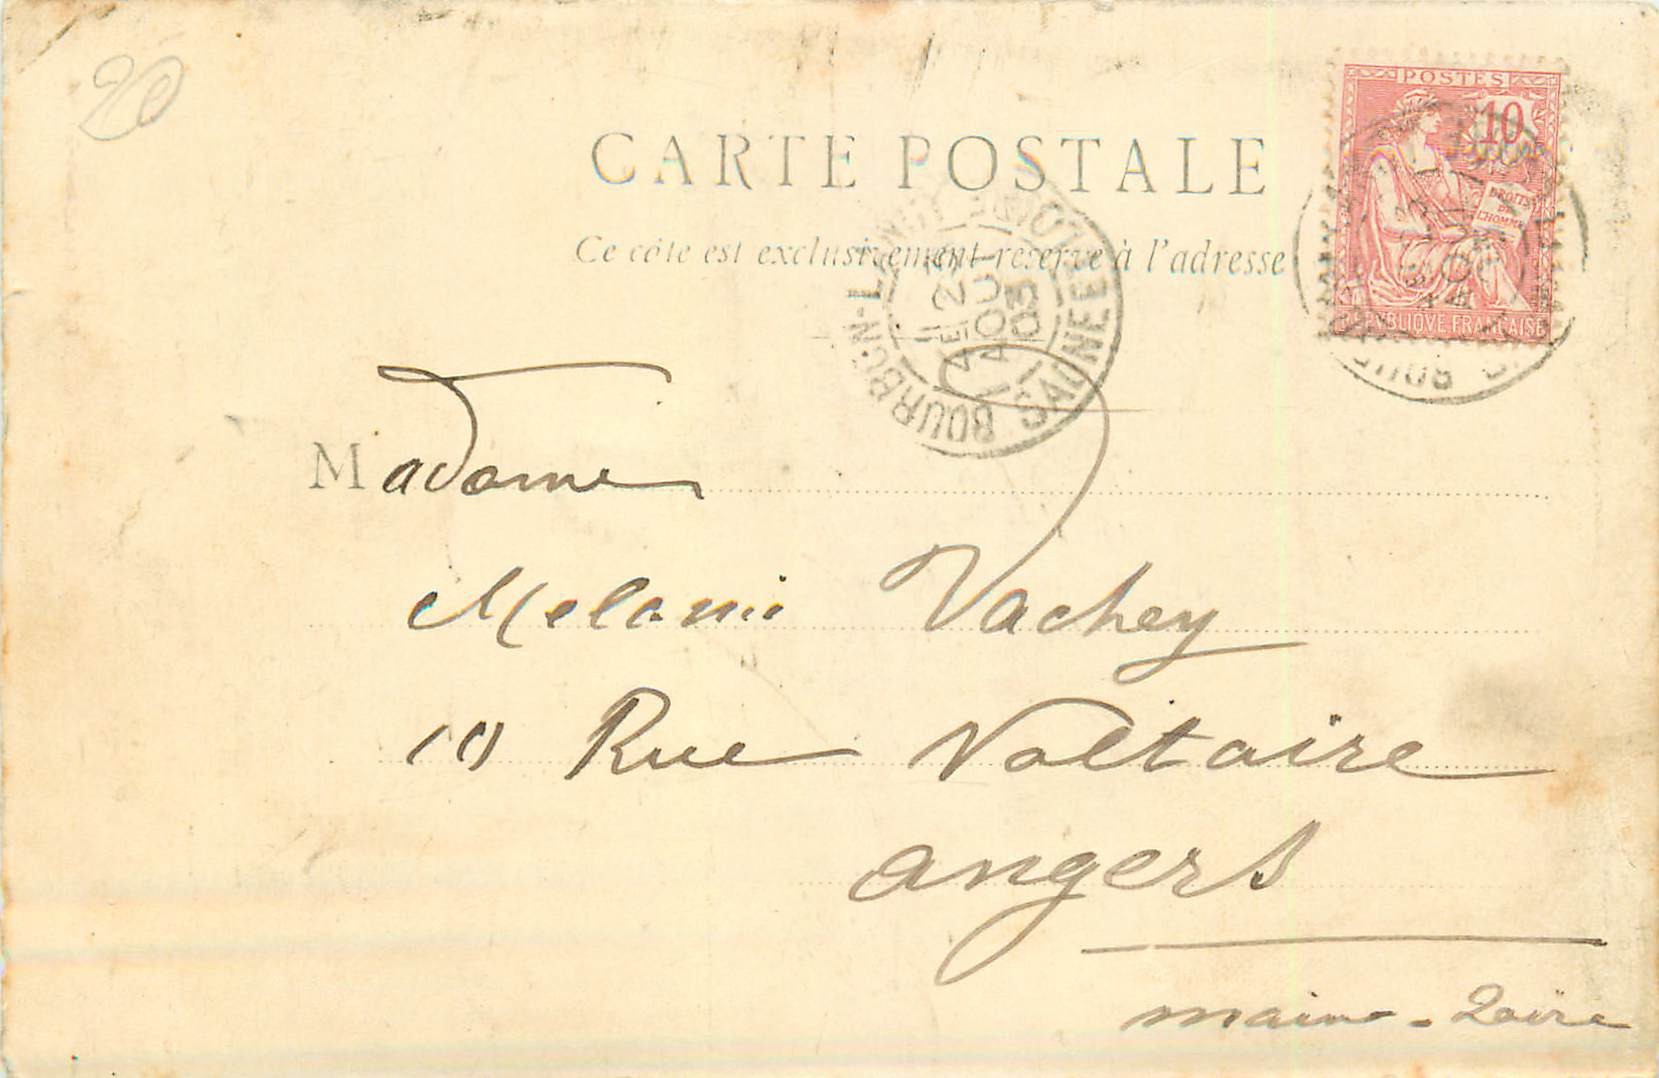 20
POSTES
10
DROITS DE L'HOMME
RÉPUBLIQUE FRANÇAISE
CARTE POSTALE
Ce côté est exclusivement réservé à l'adresse
BOURBON-LANCY SAONE ET LOIRE
4E 23
AOUT
03
Madame
Melanie Vachey
10 Rue Voltaire
Angers
Maine-Loire